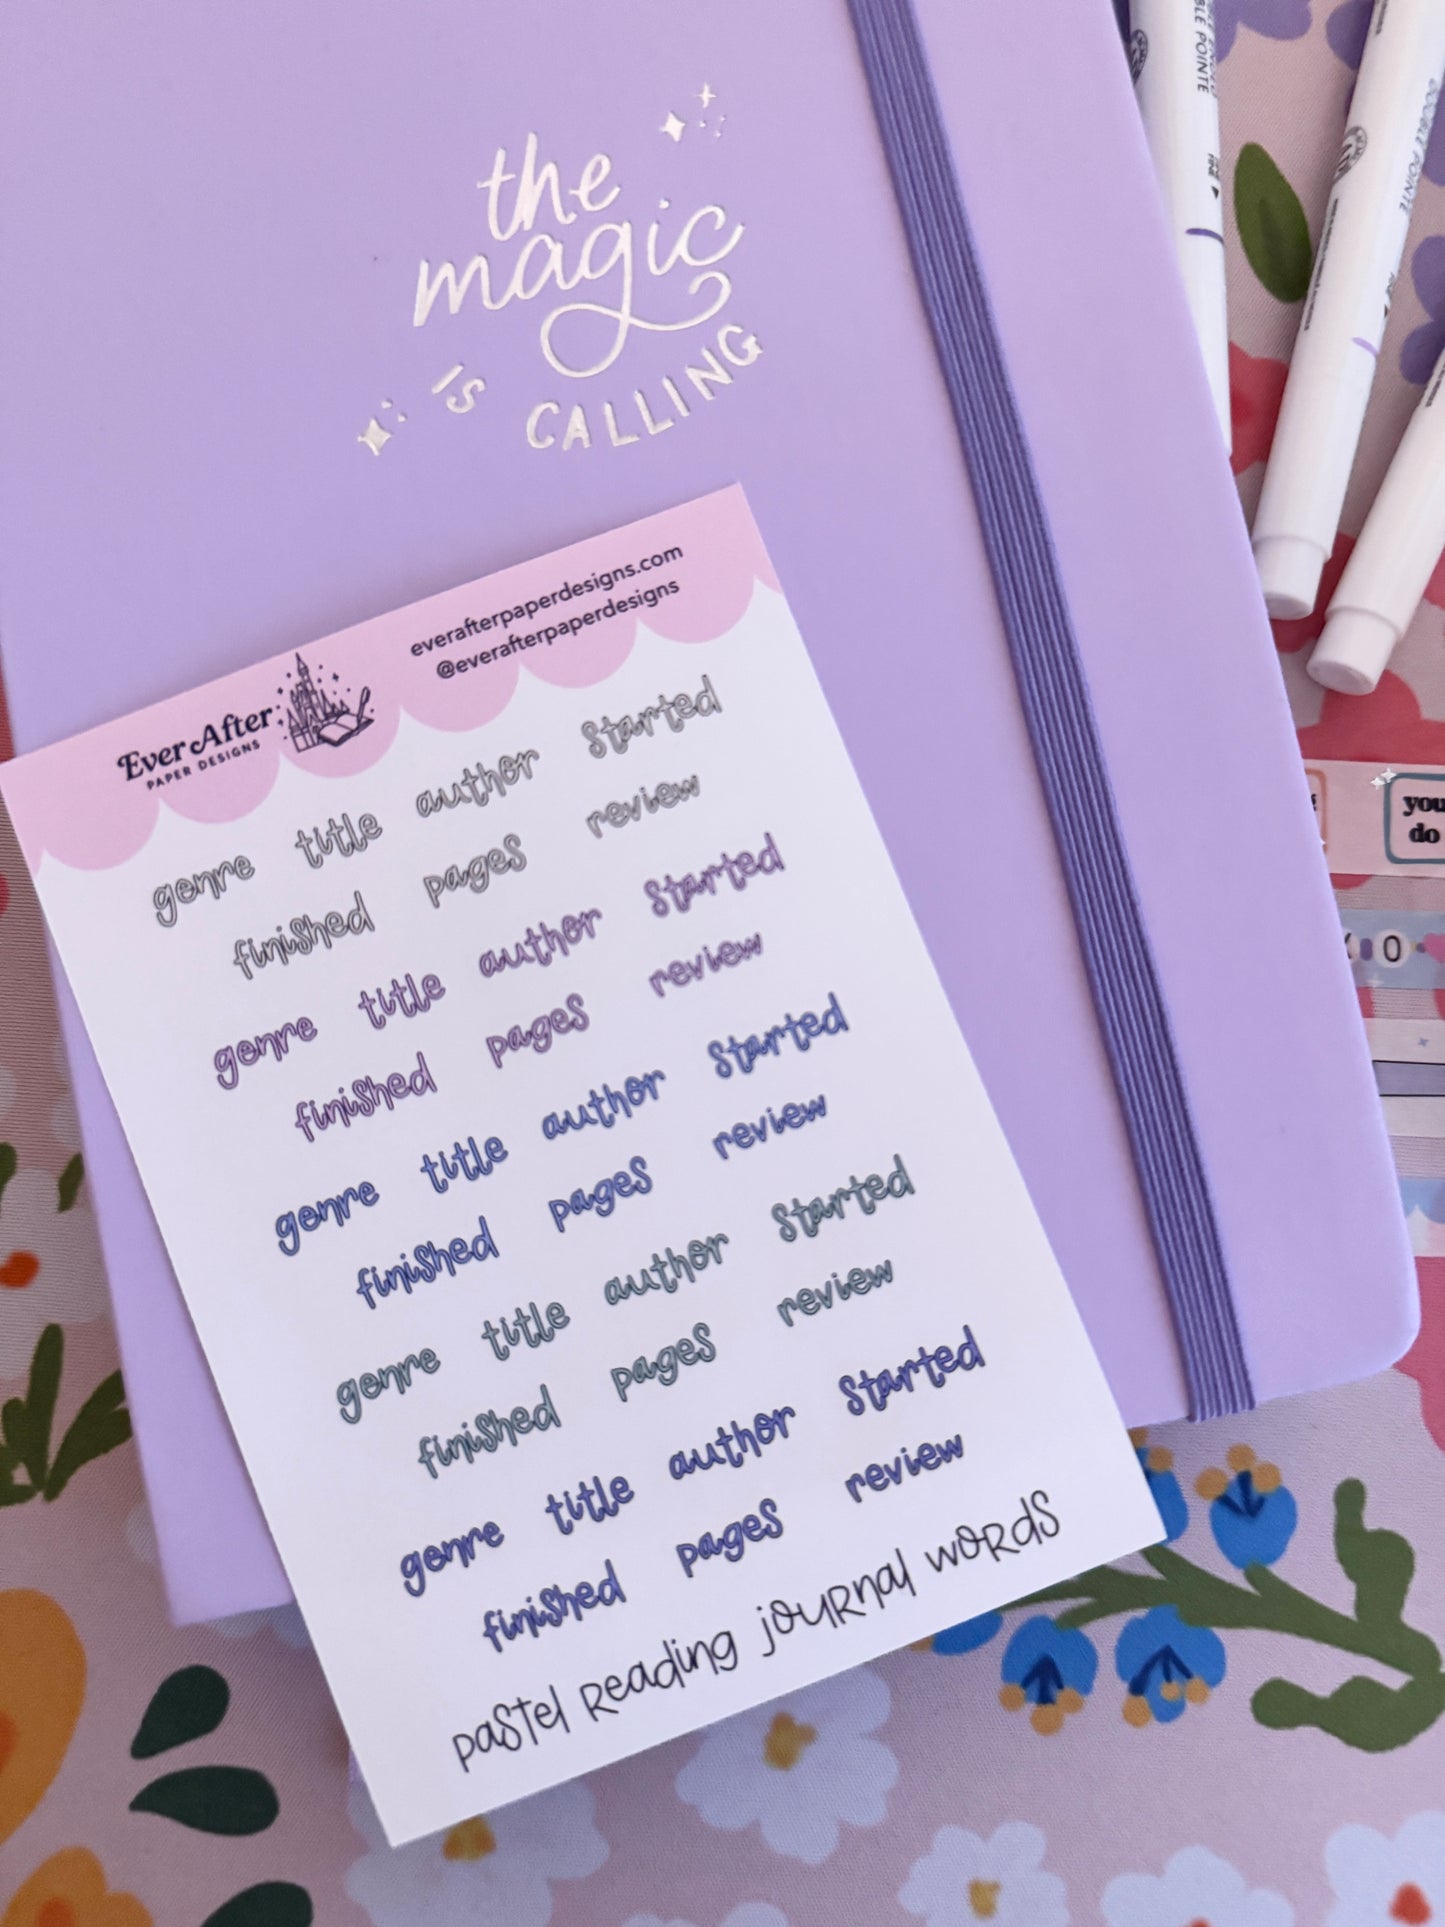 the
magic
IS CALLING
everafterpaperdesigns.com
@everafterpaperdesigns
Ever After
PAPER DESIGNS
genre title author started
finished pages review
genre title author started
finished pages review
genre title author started
finished pages review
genre title author started
finished pages review
genre title author started
finished pages review
pastel reading journal words
DOUBLE POINTE
you
do